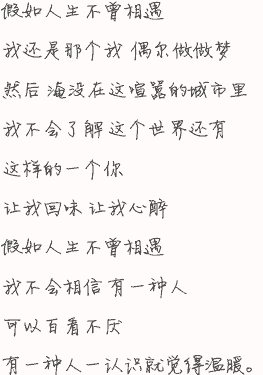 假如人生不曾相遇
我还是那个我 偶尔做做梦
然后 淹没在这喧嚣的城市里
我不会了解 这个世界还有
这样的一个你
让我回味 让我心醉
假如人生不曾相遇
我不会相信 有一种人
可以百看不厌
有一种人一认识就觉得温暖。